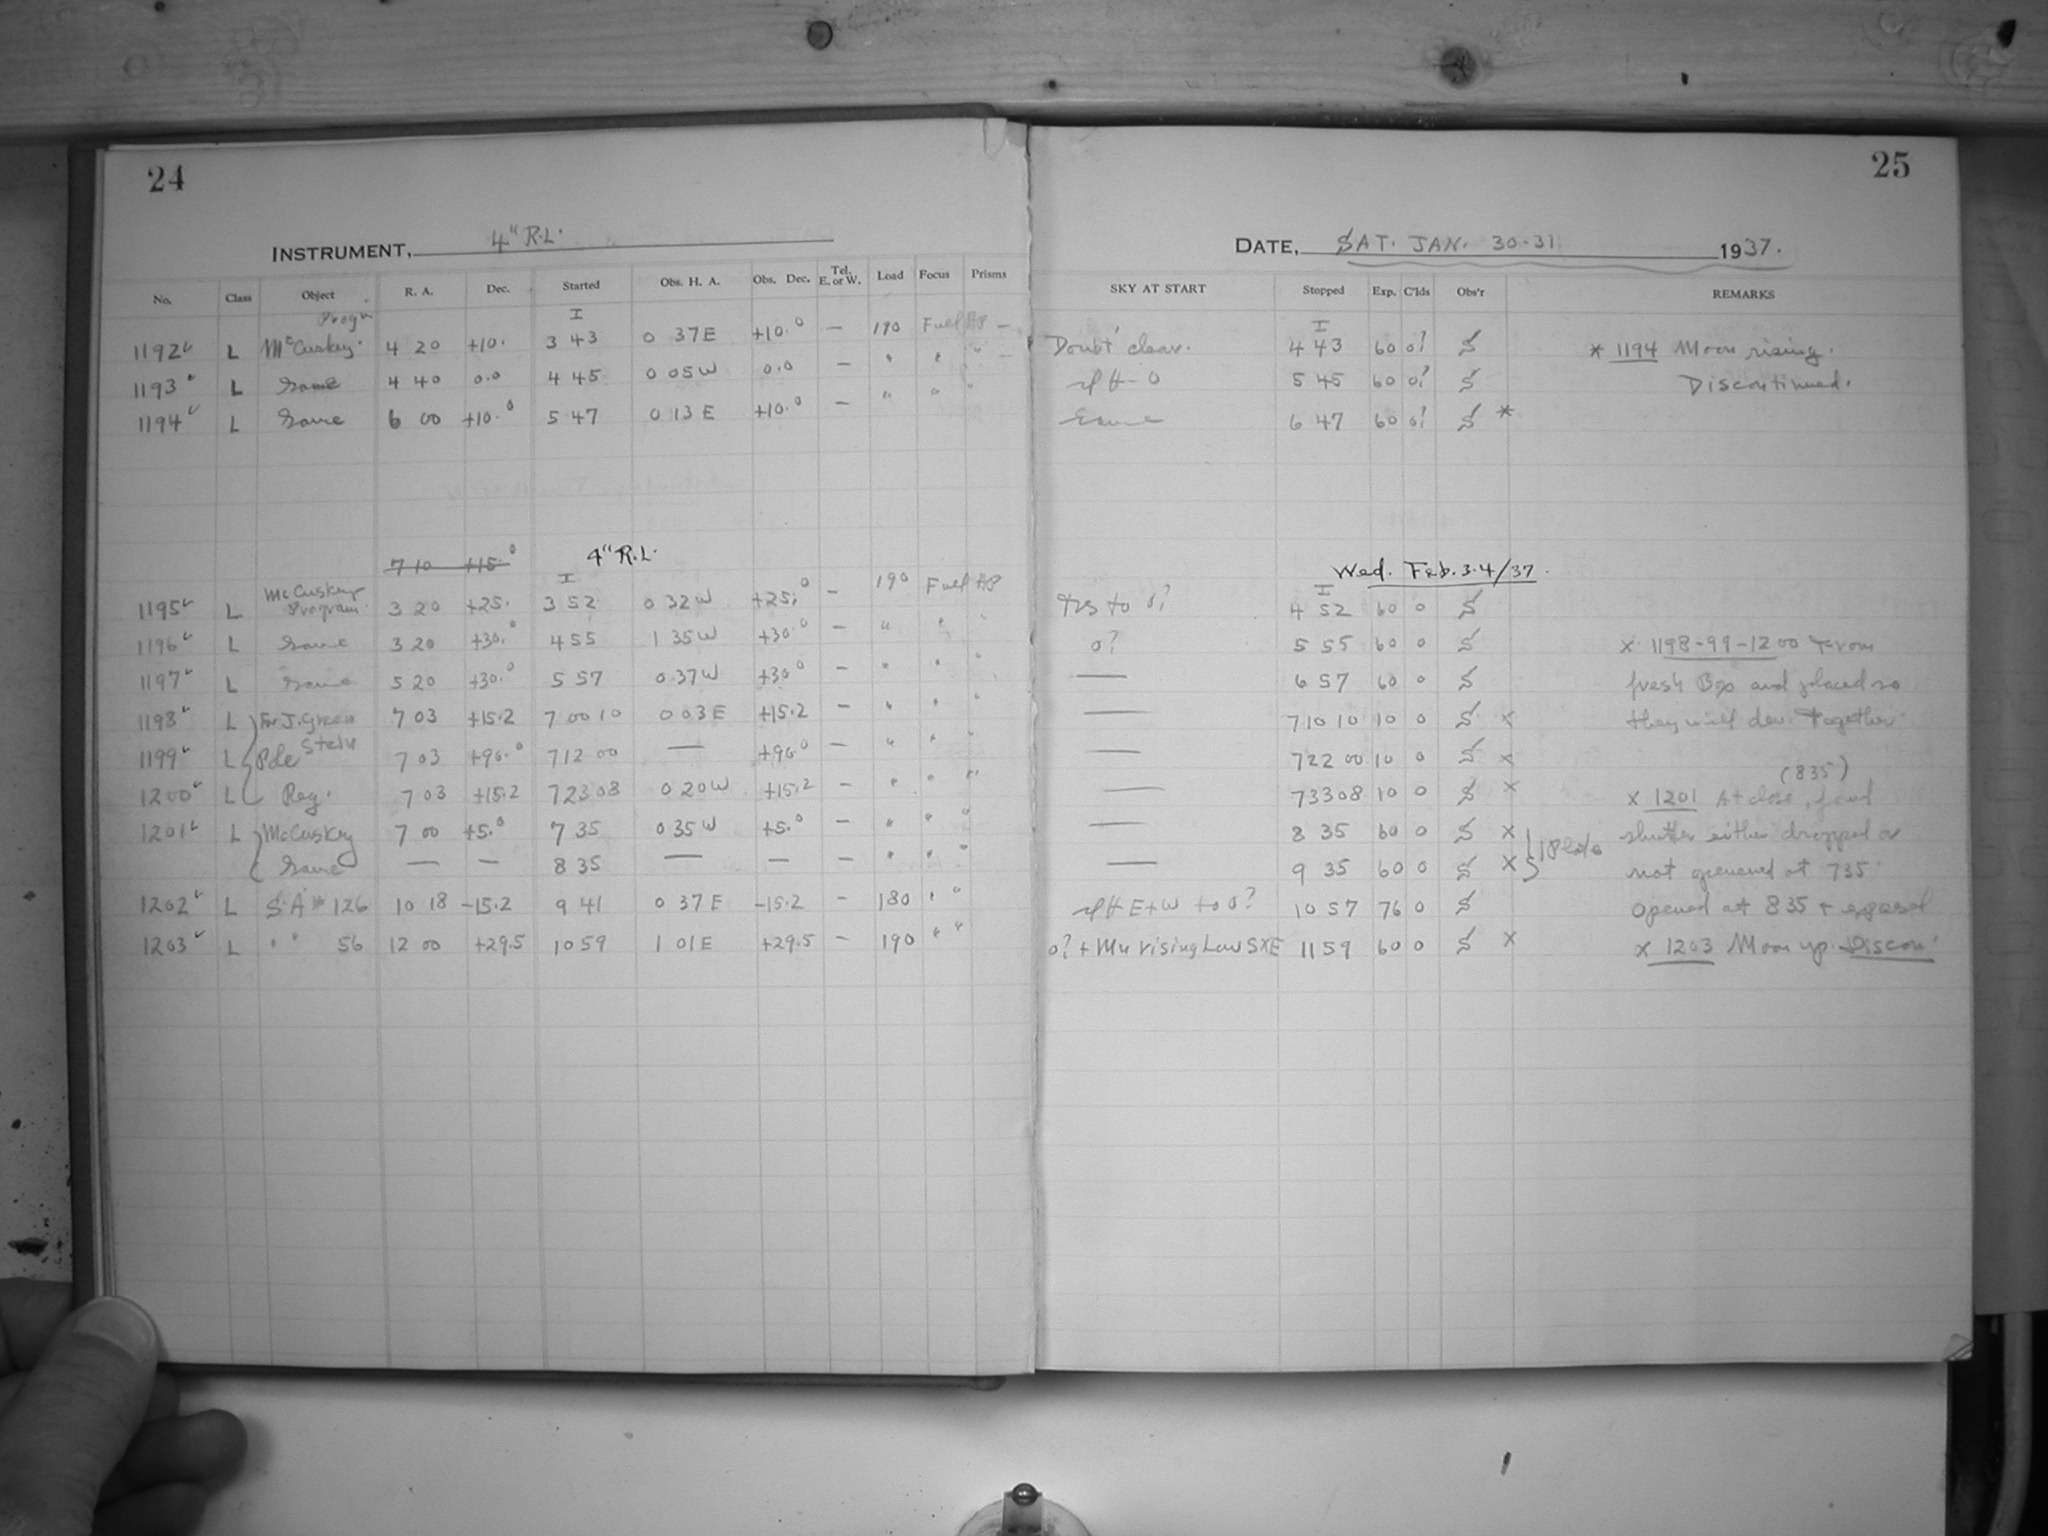 24
INSTRUMENT, 4" R.L.
No. Class Object R. A. Dec. Started Obs. H. A. Obs. Dec. Tel. E. or W. Load Focus Prisms
Progm I
1192 L McCuskey. 4 20 +10. 3 43 0 37 E +10.0 — 190 Full Ap —
1193 L Same 4 40 0.0 4 45 0 05 W 0.0 — " " " —
1194 L Same 6 00 +10.0 5 47 0 13 E +10.0 — " " "
7 10 +15.0 4" R.L.
McCuskey I
1195 L Program. 3 20 +25. 3 52 0 32 W +25.0 — 190 Full Ap
1196 L Same 3 20 +30.0 4 55 1 35 W +30.0 — " " "
1197 L Same 5 20 +30.0 5 57 0 37 W +30.0 — " " "
1198 L For J. Green 7 03 +15.2 7 00 10 0 03 E +15.2 — " " "
Stein
1199 L Pole 7 03 +90.0 7 12 00 — +90.0 — " " "
1200 L Reg. 7 03 +15.2 7 23 08 0 20 W +15.2 — " " "
1201 L McCuskey 7 00 +5.0 7 35 0 35 W +5.0 — " " "
Same — — 8 35 — — — " " "
1202 L S.A # 126 10 18 -15.2 9 41 0 37 E -15.2 — 180 " "
1203 L " " 56 12 00 +29.5 10 59 1 01 E +29.5 — 190 " "
25
DATE, SAT. JAN. 30-31 1937.
SKY AT START Stopped Exp. C'lds Obs'r REMARKS
I
Doubt' clear. 4 43 60 0? S * 1194 Moon rising.
5 45 60 0? S Discontinued.
Same 6 47 60 0? S *
Wed. Feb. 3-4/37.
I
to 0? 4 52 60 0 S
0? 5 55 60 0 S x 1198-99-1200 From
— 6 57 60 0 S fresh Box and placed so
— 7 10 10 10 0 S x they will dev. together
— 7 22 00 10 0 S x
(835)
— 7 33 08 10 0 S x x 1201 At close, found
— 8 35 60 0 S x shutter either dropped or
1 Plate
— 9 35 60 0 S x not openened at 735
E+W to 0? 10 57 76 0 S opened at 835 + exposed
0? + Mn rising Low SXE 11 59 60 0 S x x 1203 Moon up. Discon'